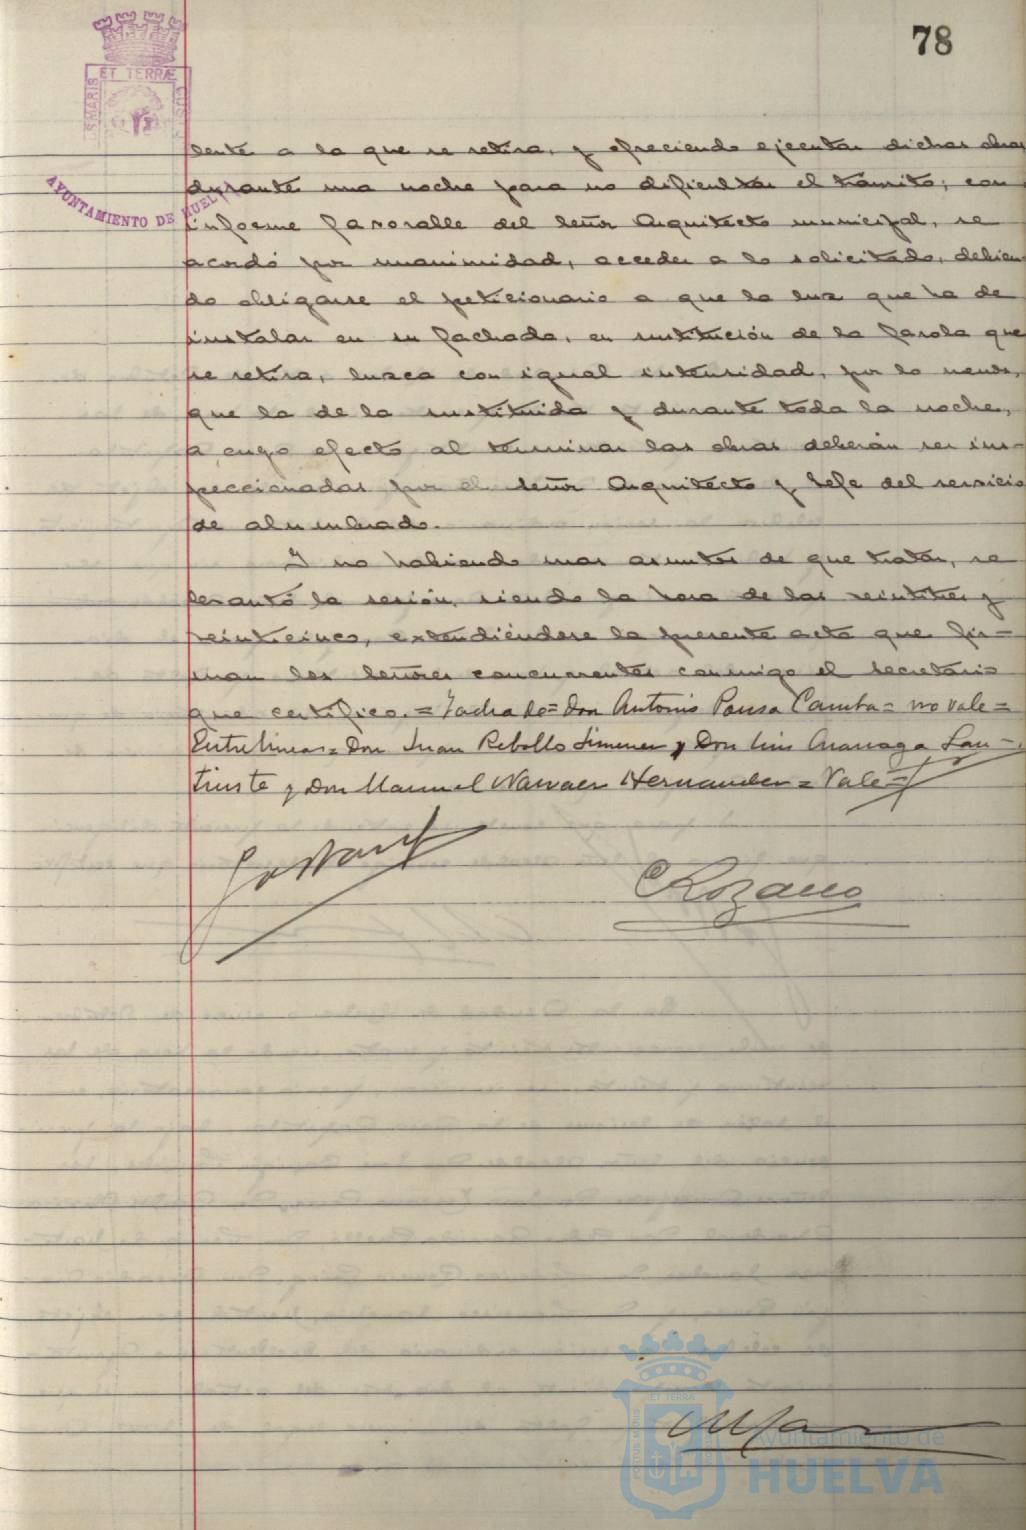 78
ET TERRÆ
AYUNTAMIENTO DE HUELVA
lente a la que se retira, y ofreciendo ejecutar dichas obras
durante una noche para no dificultar el tránsito; con
informe favorable del Señor Arquitecto municipal, se
acordó por unanimidad, acceder a lo solicitado, debien-
do obligarse el peticionario a que la luz que ha de
instalar en su fachada, en sustitución de la farola que
se retira, luzca con igual intensidad, por lo menos,
que la de la sustituida y durante toda la noche,
a cuyo efecto al terminar las obras deberán ser ins-
peccionadas por el Señor Arquitecto y Jefe del servicio
de alumbrado.
Y no habiendo mas asuntos de que tratar, se
levantó la sesión, siendo la hora de las veintitres y
veinticinco, extendiéndose la presente acta que fir-
man los Señores concurrentes conmigo el Secretario
que certifico. = Tachado = Don Antonio Pousa Camba = no vale =
Entrelineas = Don Juan Rebollo Jimenez y Don Luis
y Don Manuel Narvaez Hernandez = Vale =
Ayuntamiento de
HUELVA